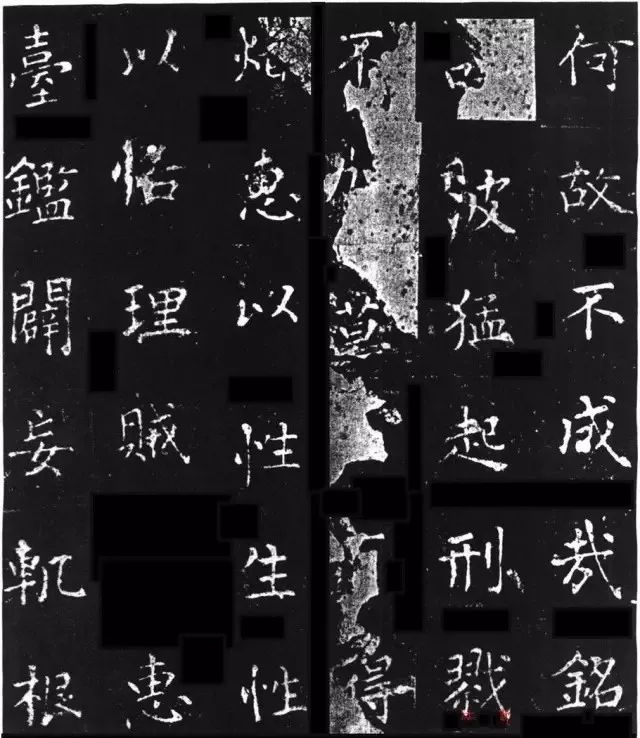 何故不成哉銘
陂猛起刑戮
不加得
惠以性生性
以怗理賊惠
臺鑑闢妄軌根